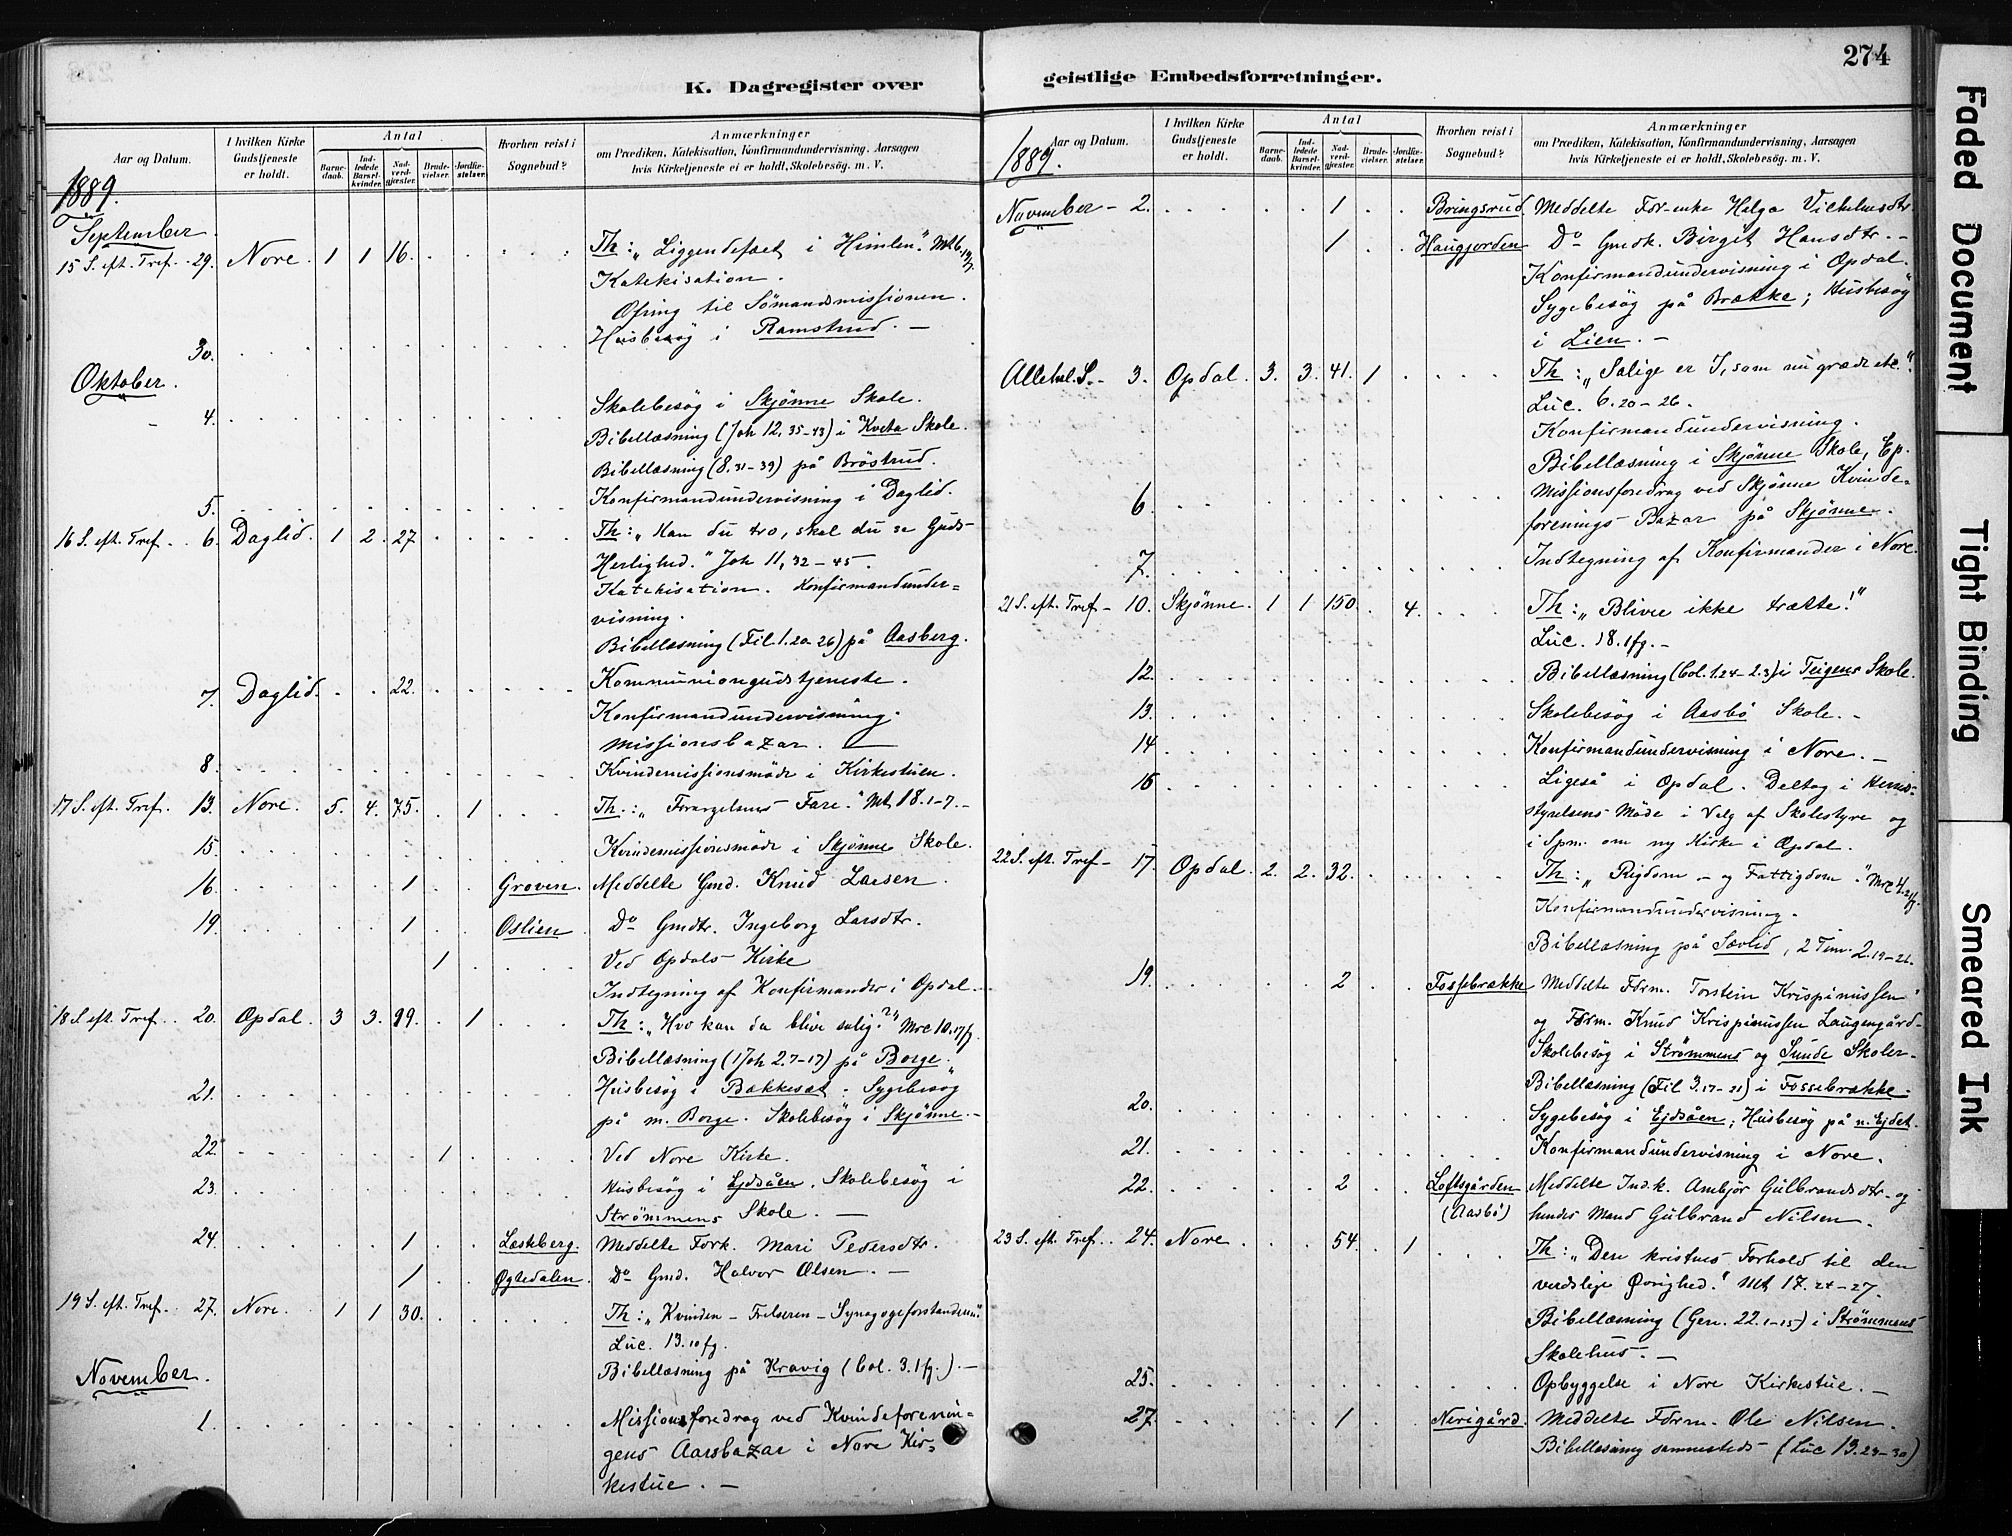 274
K. Dagregister over
geistlige Embedsforretninger.
Aar og Datum.
I hvilken Kirke Gudstjeneste er holdt.
Antal
Barnedaab.
Indledede Barselkvinder.
Nadverdgjæster.
Brudevielser.
Jordfæstelser.
Hvorhen reist i Sognebud?
Anmærkninger
om Prædiken, Katekisation, Konfirmandundervisning, Aarsagen
hvis Kirketjeneste ei er holdt, Skolebesøg. m. V.
1889.
September
15 S. eft. Tref. 29. Nore 1 1 16. Th: „Liggendefæet i Himlen“. Mt 6. 19 fg.
Katekisation.
Ofring til Sömandsmissionen.
30. Husbesøg i Ramstrud. —
Oktober.
4. Skolebesøg i Skjønne Skole.
Bibellæsning (Joh 12, 35-43) i Kveta Skole.
Bibellæsning (8. 31-39) på Bröstrud.
5. Konfirmandundervisning i Daglid.
16 S. eft. Tref. 6. Daglid. 1 2. 27 Th: „Kan du tro, skal du se Guds-
Herlighed.“ Joh 11, 32-45.
Katekisation. Konfirmandunder-
visning.
Bibellæsning (Fil. 1. 20-26) på Aasberg.
7. Daglid. 22. Kommuniongudstjeneste.
Konfirmandundervisning.
Missionsbazar. —
8. Kvindemissionsmöde i Kirkestuen.
17 S. eft. Tref. 13. Nore. 5. 4. 75. 1 Th.: „Forargelsens Fare.“ Mt 18. 1-7. —
15. Kvindemissionsmöde i Skjönne Skole.
16. 1 Groven. Meddelte Gmd. Knud Larsen.
19. 1 Oslien. Do Gmdtr. Ingeborg Larsdtr.
1 Ved Opdals Kirke
Indtegning af Konfirmander i Opdal.
18 S. eft. Tref. 20. Opdal. 3 3. 99. 1 Th: „Hvo kan da blive salig?“ Mrc 10. 17 fg.
Bibellæsning (1 Joh 2. 7-17) på Borge.
21. Husbesøg i Bakkesæt. Sygebesøg
på m. Borge. Skolebesøg i Skjönne. —
22 1 Ved Nore Kirke.
23. Husbesøg i Ejdsåen. Skolebesøg i
Strömmens Skole. —
24. 1 Læskeberg. Meddelte Fork. Mari Pedersdtr.
1 Øgtedalen. Do Gmd. Halvor Olsen. —
19 S. eft. Tref. 27. Nore. 1 1 30. Th: „Kvinden - Frelseren - Synagogeforstanderen“
Luc. 13. 10 fg.
Bibellæsning på Kravig (Col. 3. 1 fg.) —
November.
1. Missionsforedrag ved Kvindeforenin-
gens Aarsbazar i Nore Kir-
kestue. —
Aar og Datum.
I hvilken Kirke Gudstjeneste er holdt.
Antal
Barnedaab.
Indledede Barselkvinder.
Nadverdgjæster.
Brudevielser.
Jordfæstelser.
Hvorhen reist i Sognebud?
Anmærkninger
om Prædiken, Katekisation, Konfirmandundervisning, Aarsagen
hvis Kirketjeneste ei er holdt, Skolebesøg. m. V.
1889.
November - 2. 1 Bringsrud Meddelte Fdr. enke Helga Vilhelmsdtr.
1 Haugjorden Do Gmdk. Birgit Hansdtr. —
Konfirmandundervisning i Opdal.
Sygebesøg på Brække; Husbesøg
i Lien. —
Allehel. S. - 3. Opdal. 3. 3. 41. 1 Th: „Salige er I, som nu græde etc.“
Luc. 6. 20-26.
Konfirmandundervisning.
Bibellæsning i Skjönne Skole, Ep.
6. Missionsforedrag ved Skjönne Kvinde-
forenings Bazar på Skjönne.
7. Indtegning af Konfirmander i Nore.
21 S. eft. Tref - 10. Skjönne. 1 1 150. 4. Th: „Blive ikke trætte!“
Luc. 18. 1 fg. —
12. Bibellæsning (Col. 1. 24 - 2. 3) i Teigens Skole.
13. Skolebesøg i Aasbö Skole. —
14 Konfirmandundervisning i Nore. —
16 Ligeså i Opdal. Deltog i Herreds-
styrelsens Möde i Valg af Skolestyre og
i Spm. om ny Kirke i Opdal.
22 S. eft. Tref - 17. Opdal 2. 2. 32. Th: „Rigdom - og Fattigdom“. Mrc 4. 21 fg.
Konfirmandundervisning.
Bibellæsning på Sævlid, 2 Tim. 2. 19-26.
19. 2 Fossebrække Meddelte Fdrm. Torstein Krispinussen
og Fdrm. Knud Krispinussen Laugengård.
Skolebesøg i Strömmens og Sunde Skoler.
Bibellæsning (Fil 3. 17-21) i Fossebrække.
20. Sygebesøg i Ejdsåen; Husbesøg på n. Ejdet.
21. Konfirmandundervisning i Nore.
22. 2 Loftsgården Meddelte Ind.k. Ambjör Gulbrandsdtr. og
(Aasbö) hendes Mand Gulbrand Nilsen.
23 S. eft. Tref. 24. Nore. 54. 1 Th: „Den kristnes Forhold til den
verdslige Øvrighed.“ Mt 17. 24-27.
Bibellæsning (Gen. 22. 1-15) i Strömmens
Skolehus. —
25. Opbyggelse i Nore Kirkestue. —
27. 1 Nerigård. Meddelte Fdrm. Ole Nilsen.
Bibellæsning sammesteds - (Luc 13. 23-30)
Faded Document
Tight Binding
Smeared Ink